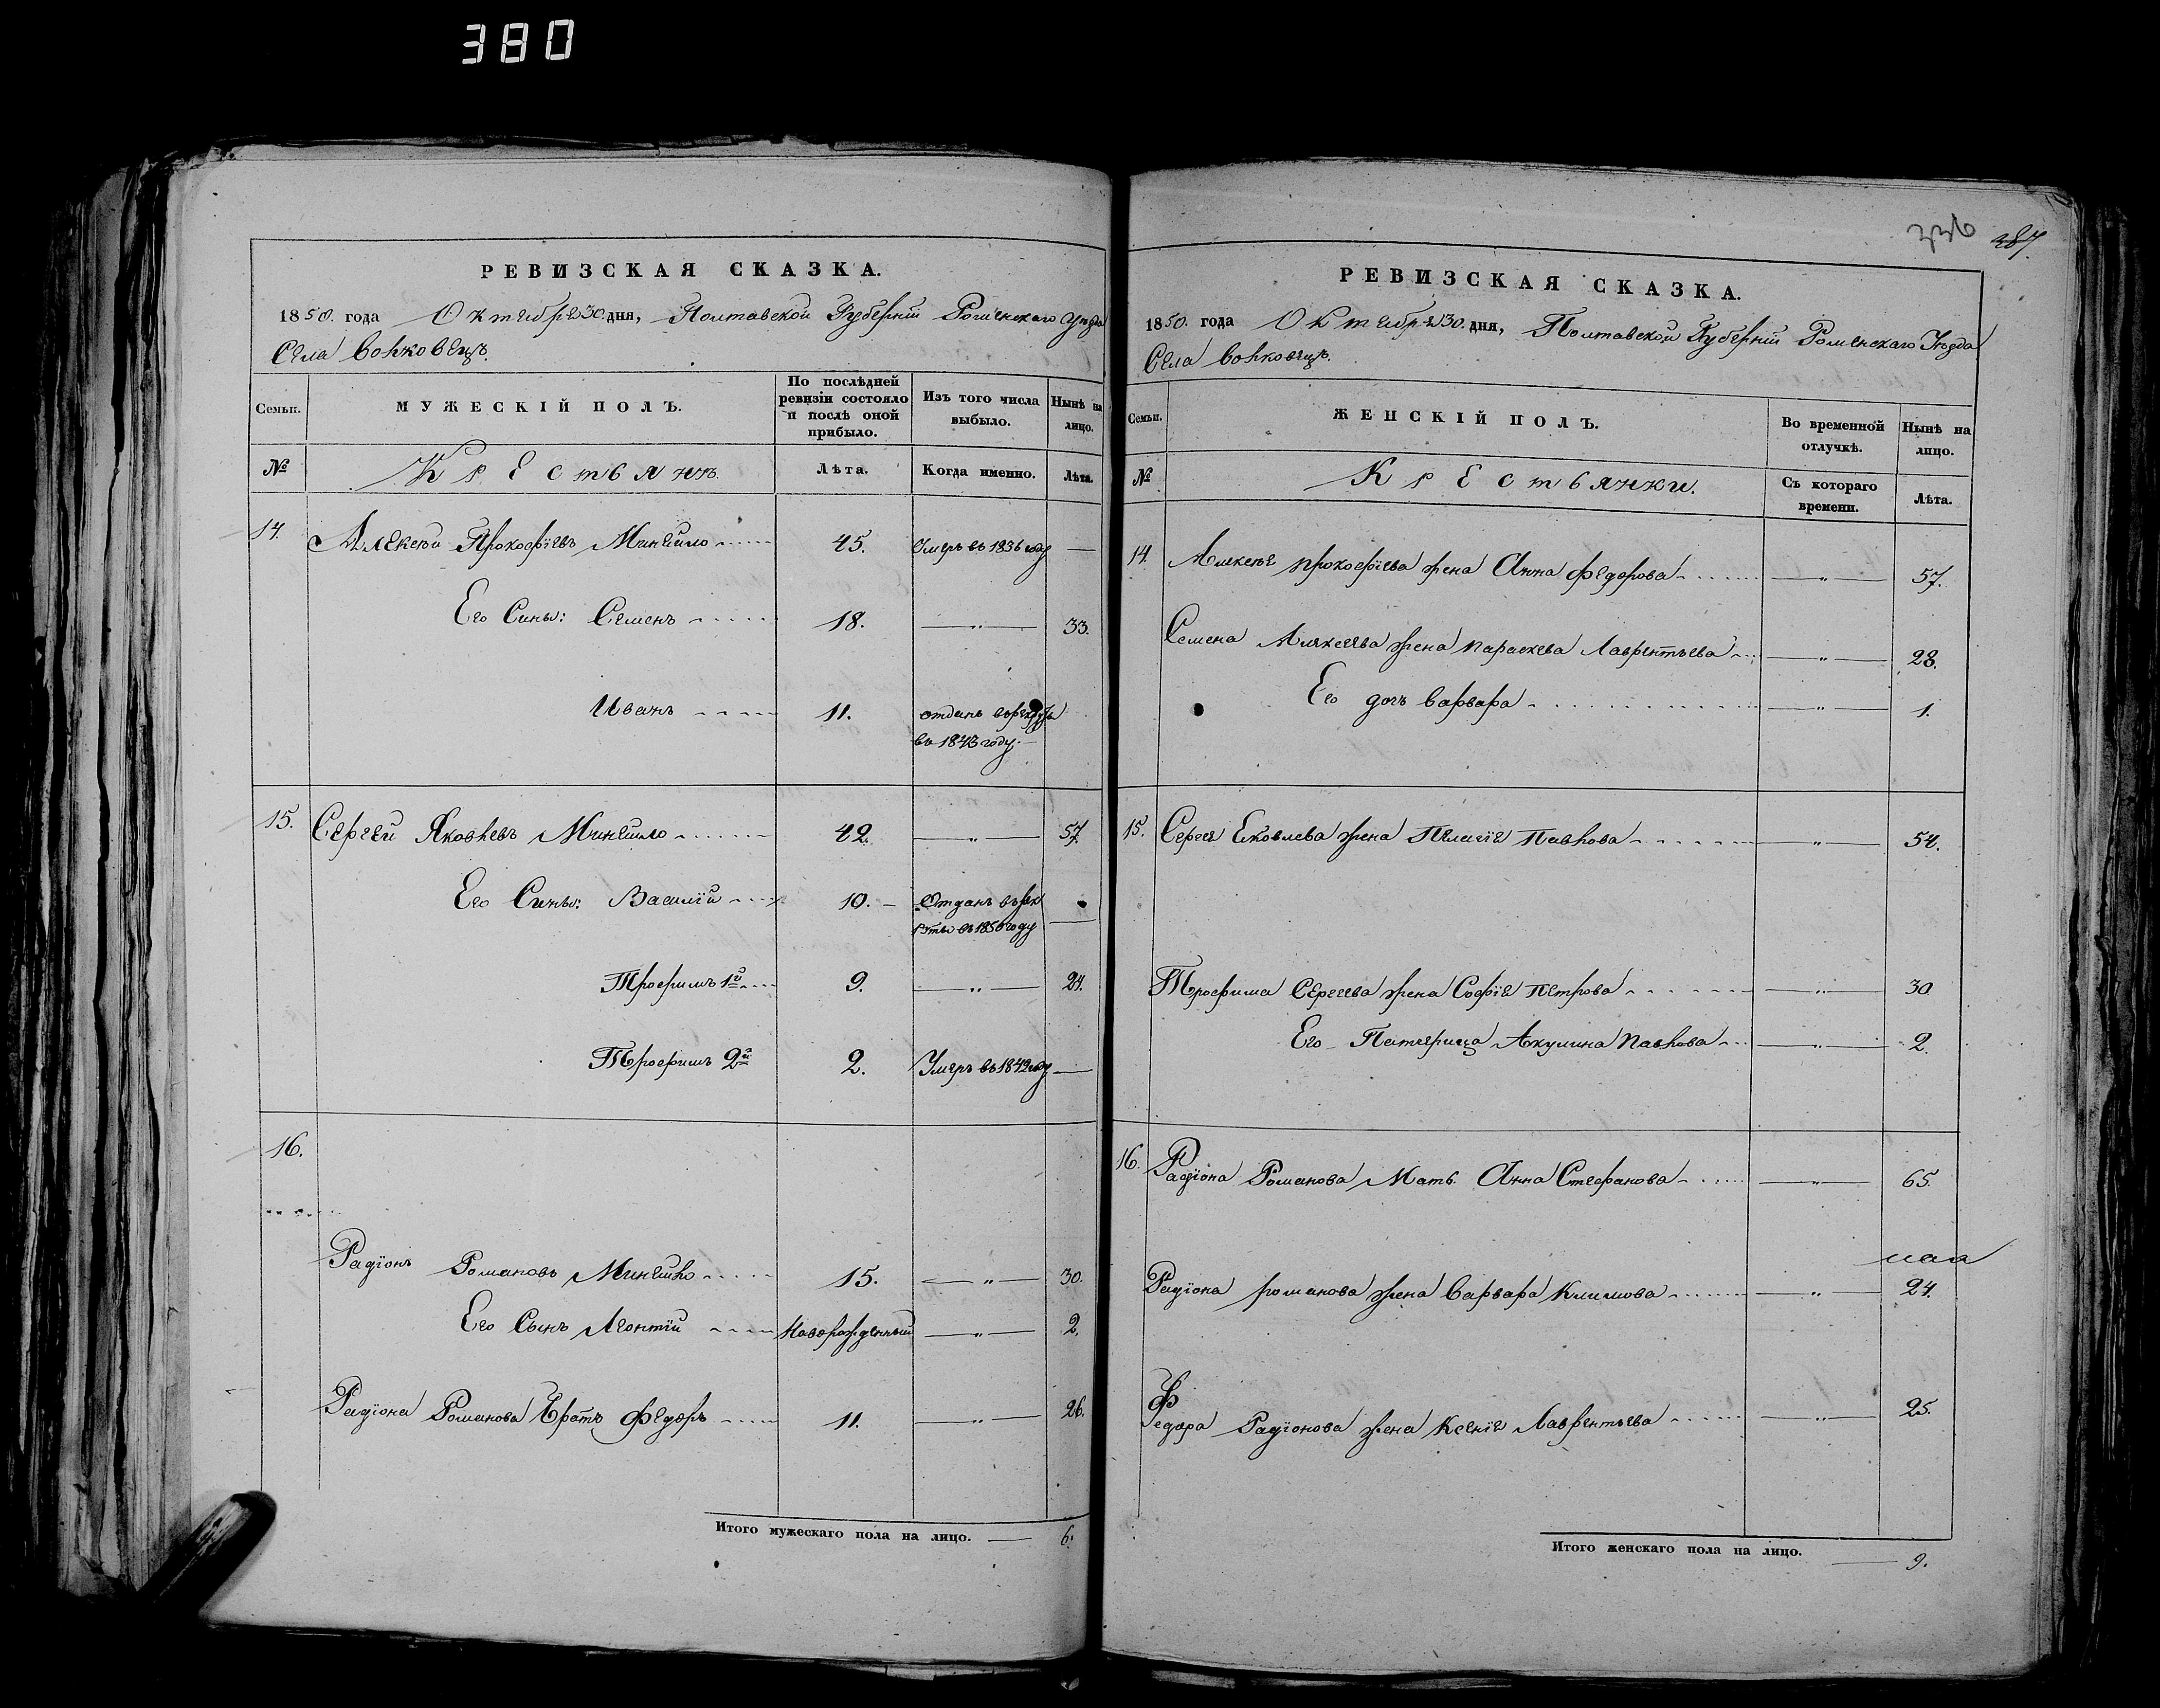 380
РЕВИЗСКАЯ СКАЗКА.
1850. года Октебре 30. дня, Полтавской Губерніи Роменскаго Уѣзда
Села Волковецъ.
Семьи.
МУЖЕСКІЙ ПОЛЪ.
По послѣдней ревизіи состояло и послѣ оной прибыло.
Изъ того числа выбыло.
Нынѣ на лицо.
№
Крестьянъ.
Лѣта.
Когда именно.
Лѣта.
14. Алексѣй Прокофіевъ Минѣйло 45. Умеръ въ 1836 году —
Его Сины: Семенъ 18. — „ — 33.
Иванъ 11. отданъ въ рекруты
въ 1843 году. —
15. Сергей Яковлевъ Минейло 42. — „ — 57.
Его Сины: Василій 10. — Отданъ въ рек
руты въ 1850 году —
Трофимъ 1й 9. — „ — 24.
Трофимъ 2й 2. Умеръ въ 1842 году —
16.
Радіонъ Романовъ Минейло 15. — „ — 30.
Его Сынъ Леонтій Новорожденный — „ — 2.
Радіона Романова Братъ Федоръ 11. — „ — 26.
Итого мужескаго пола на лицо. — 6.
336 387.
РЕВИЗСКАЯ СКАЗКА.
1850. года Октебре 30. дня, Полтавской Губерніи Роменскаго Уѣзда
Села Волковецъ.
Семьи.
ЖЕНСКІЙ ПОЛЪ.
Во временной отлучкѣ.
Нынѣ на лицо.
№
Крестьянки.
Съ котораго времени.
Лѣта.
14. Алексѣе Прокофіева жена Анна Федорова — „ — 57.
Семена Алексеева жена Параскева Лаврентьева — „ — 28.
Его дочь Варвара — „ — 1.
15. Сергея Ековлева жена Пелагіе Павлова — „ — 54.
Трофима Сергеева жена Софіе Петрова — „ — 30
Его Патчерица Акулина Павлова — „ — 2.
16. Радіона Романова Мать Анна Стефанова — „ — 65.
Радіона Романова жена Варвара Климова — „ — 24.
Федора Радіонова жена Ксеніе Лаврентьева — „ — 25.
Итого женскаго пола на лицо. — 9.